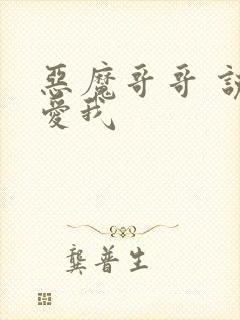 惡魔哥哥
愛我
龔普生